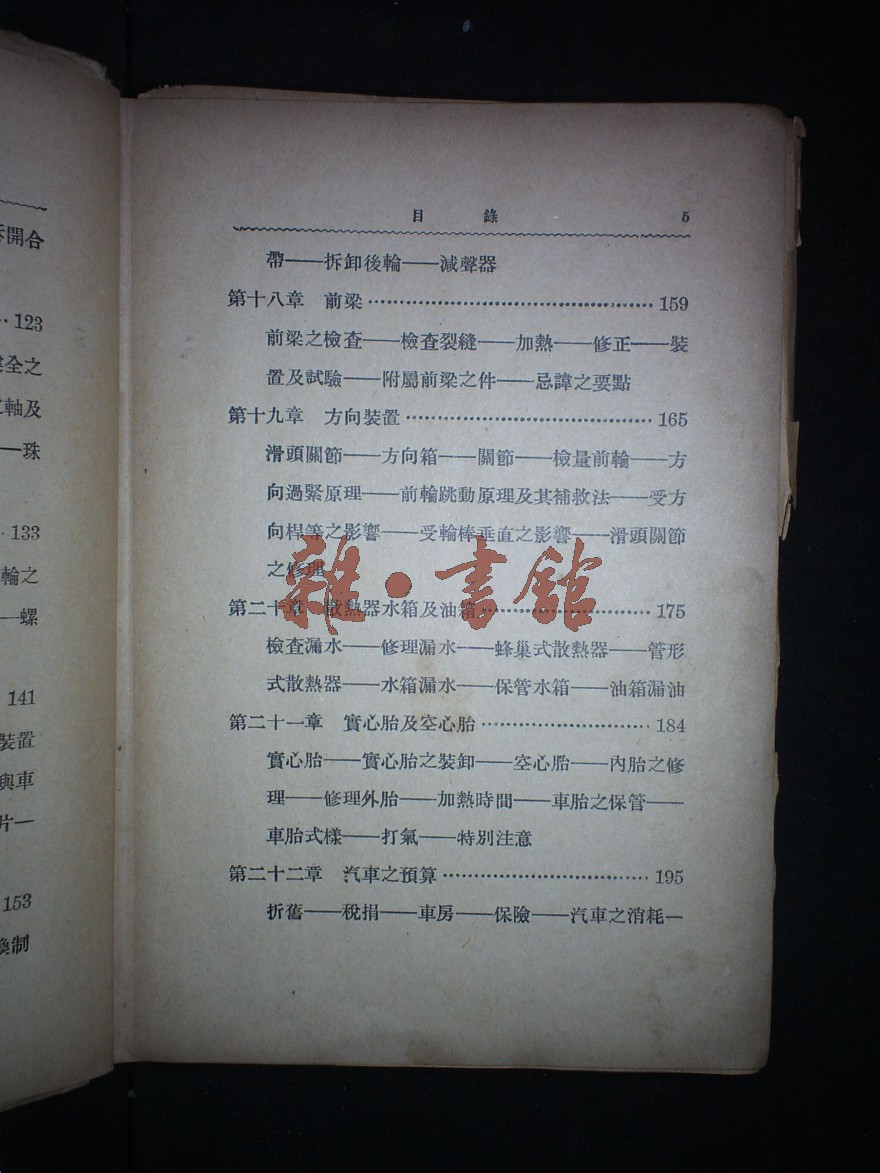 拆開合
123
全之
軸及
—珠
133
輪之
—螺
141
裝置
與車
片—
153
換制
目錄 5
帶——拆卸後輪——減聲器
第十八章 前梁……159
前梁之檢查——檢查裂縫——加熱——修正——裝
置及試驗——附屬前梁之件——忌諱之要點
第十九章 方向裝置……165
滑頭關節——方向箱——關節——檢量前輪——方
向過緊原理——前輪跳動原理及其補救法——受方
向桿等之影響——受輪棒垂直之影響——滑頭關節
之修理
第二十章 散熱器水箱及油箱……175
檢查漏水——修理漏水——蜂巢式散熱器——管形
式散熱器——水箱漏水——保管水箱——油箱漏油
第二十一章 實心胎及空心胎……184
實心胎——實心胎之裝卸——空心胎——內胎之修
理——修理外胎——加熱時間——車胎之保管——
車胎式樣——打氣——特別注意
第二十二章 汽車之預算……195
折舊——稅捐——車房——保險——汽車之消耗—
雜·書館